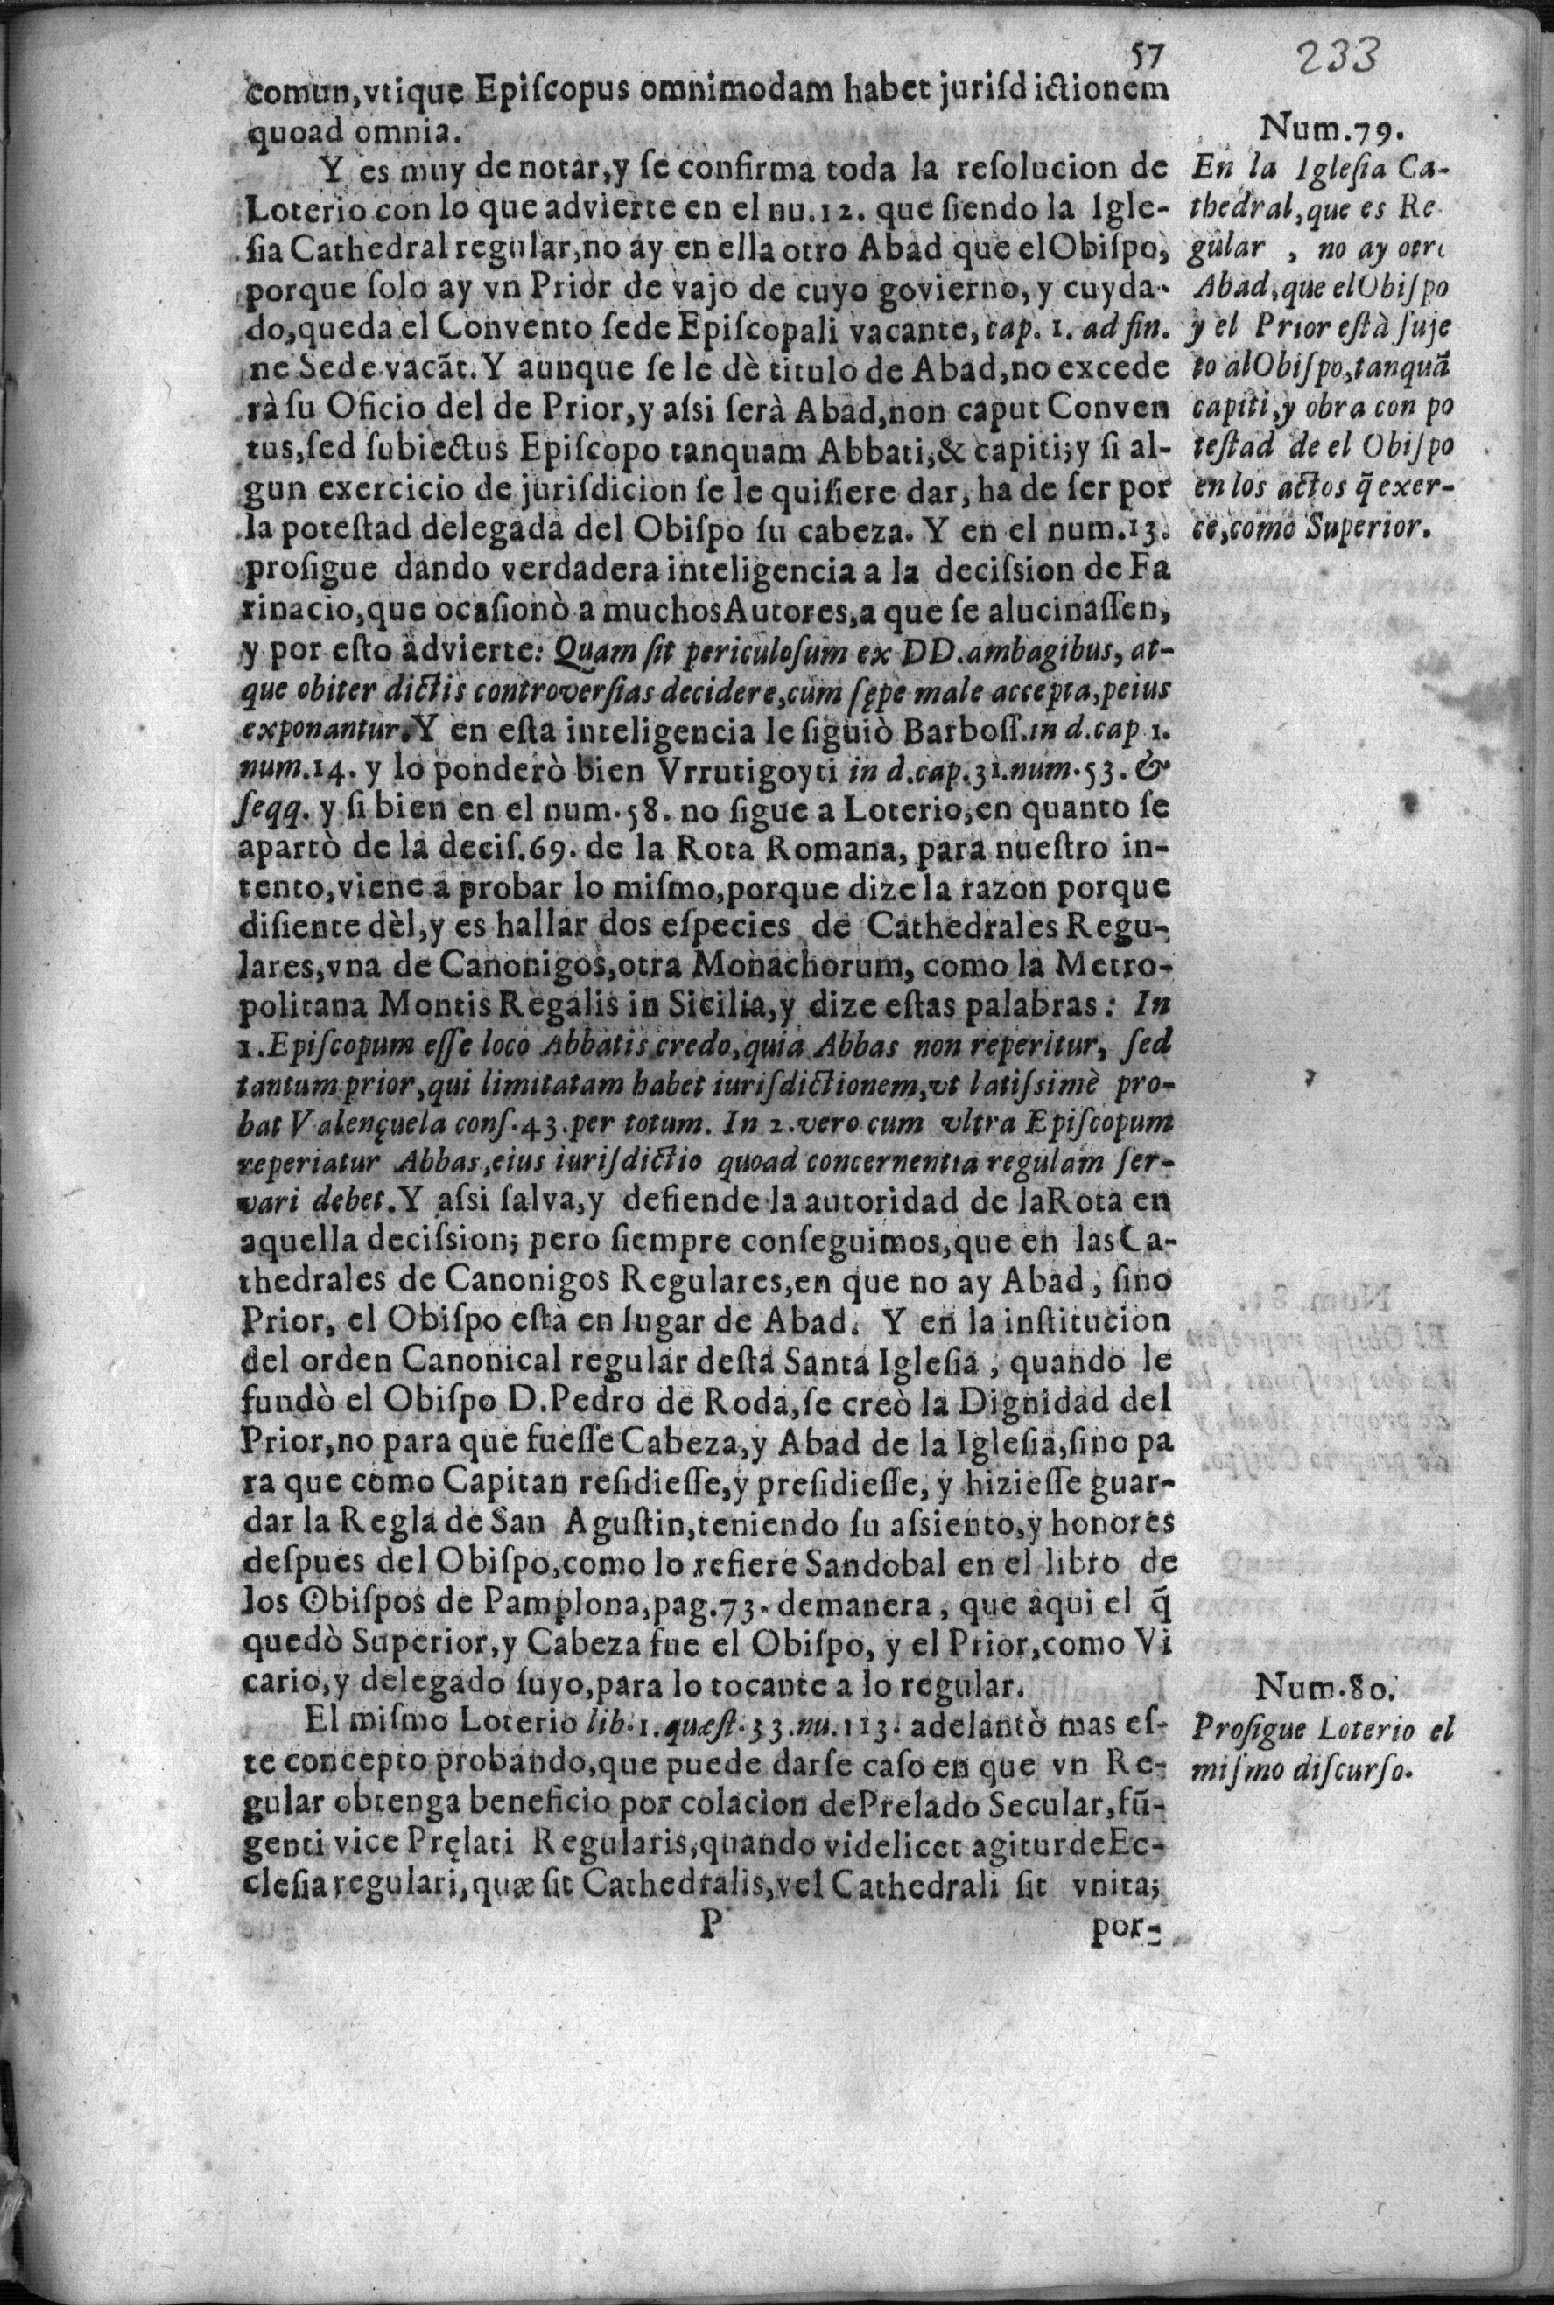 57
233
comun,vtique Epiſcopus omnimodam habet juriſdictionem
quoad omnia.
Y es muy de notar,y ſe confirma toda la reſolucion de
Loterio con lo que advierte en el nu.12. que ſiendo la Igle-
ſia Cathedral regular,no ay en ella otro Abad que el Obiſpo,
porque ſolo ay vn Prior de vajo de cuyo govierno, y cuyda-
do,queda el Convento ſede Epiſcopali vacante, cap. 1. ad fin.
ne Sede vacãt. Y aunque ſe le dè titulo de Abad,no excede
rà ſu Oficio del de Prior,y aſsi ſerà Abad,non caput Conven
tus,ſed ſubiectus Epiſcopo tanquam Abbati,& capiti;y ſi al-
gun exercicio de juriſdicion ſe le quiſiere dar, ha de ſer por
la poteſtad delegada del Obiſpo ſu cabeza. Y en el num.13.
proſigue dando verdadera inteligencia a la deciſsion de Fa
rinacio,que ocaſionò a muchos Autores,a que ſe alucinaſſen,
y por eſto advierte: Quam ſit periculoſum ex DD.ambagibus, at-
que obiter dictis controverſias decidere,cum ſępe male accepta,peius
exponantur. Y en eſta inteligencia le ſiguiò Barboſſ.in d.cap 1.
num.14. y lo ponderò bien Vrrutigoyti in d.cap.31.num.53. &
ſeqq. y ſi bien en el num.58. no ſigue a Loterio,en quanto ſe
apartò de la deciſ.69. de la Rota Romana, para nueſtro in-
tento,viene a probar lo miſmo,porque dize la razon porque
diſiente dèl,y es hallar dos eſpecies de Cathedrales Regu-
lares,vna de Canonigos,otra Monachorum, como la Metro-
politana Montis Regalis in Sicilia,y dize eſtas palabras: In
1.Epiſcopum eſſe loco Abbatis credo,quia Abbas non reperitur, ſed
tantum prior,qui limitatam habet iuriſdictionem,vt latiſsimè pro-
bat Valençuela conſ.43.per totum. In 2.vero cum vltra Epiſcopum
reperiatur Abbas,eius iuriſdictio quoad concernentia regulam ſer-
vari debet. Y aſsi ſalva,y defiende la autoridad de la Rota en
aquella deciſsion; pero ſiempre conſeguimos,que en las Ca-
thedrales de Canonigos Regulares,en que no ay Abad, ſino
Prior, el Obiſpo eſtà en lugar de Abad. Y en la inſtitucion
del orden Canonical regular deſta Santa Igleſia, quando le
fundò el Obiſpo D.Pedro de Roda,ſe creò la Dignidad del
Prior,no para que fueſſe Cabeza,y Abad de la Igleſia,ſino pa
ra que como Capitan reſidieſſe,y preſidieſſe, y hizieſſe guar-
dar la Regla de San Aguſtin,teniendo ſu aſsiento,y honores
deſpues del Obiſpo,como lo refiere Sandobal en el libro de
los Obiſpos de Pamplona,pag.73. demanera, que aqui el q̃
quedò Superior,y Cabeza fue el Obiſpo, y el Prior,como Vi
cario,y delegado ſuyo,para lo tocante a lo regular.
El miſmo Loterio lib.1.quæſt.33.nu.113. adelantò mas eſ-
te concepto probando,que puede darſe caſo en que vn Re-
gular obtenga beneficio por colacion de Prelado Secular,fũ-
genti vice Pręlati Regularis,quando videlicet agitur de Ec-
cleſia regulari,quæ ſit Cathedralis,vel Cathedrali ſit vnita;
P
por-
Num.79.
En la Igleſia Ca-
thedral,que es Re-
gular , no ay otro
Abad,que el Obiſpo
y el Prior eſtà ſuje
to al Obiſpo,tanquã
capiti,y obra con po
teſtad de el Obiſpo
en los actos q̃ exer-
ce,como Superior.
Num.80.
Proſigue Loterio el
miſmo diſcurſo.